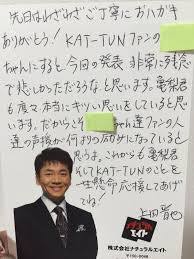 先日はわざわざご丁寧におハガキ
ありがとう！KAT-TUNファンの
ちゃんにすると今回の発表非常に残念
で悲しかっただろなと思います。亀梨君
も度々本当にキツい思いをしていると思
います。だからこそ ちゃん達ファンの人
達の声援が何よりの力になっていると
思うよ。これからも亀梨君
そしてKAT-TUNのことを
一生懸命応援してあげ
てね！
上田晋也
ナチュラルエイト
株式会社ナチュラルエイト
〒150-0046